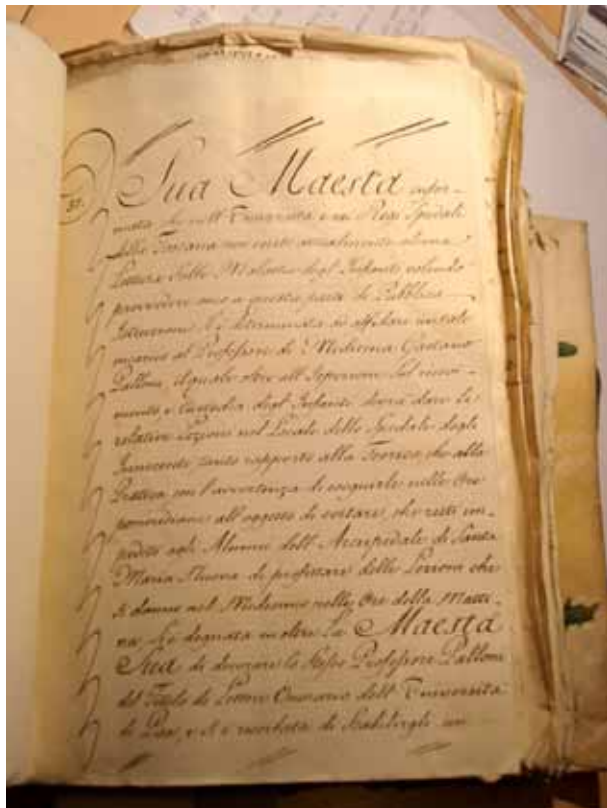 37.
Sua Maestà infor-
mata che nell' Università e nei Regi Spedali
della Toscana non esiste attualmente alcuna
Lettura sulle Malattie degl' Infanti, volendo
provvedere anco a questa parte di Pubblica
Istruzione si è determinata di affidare un tale
incarico al Professore di Medicina Gaetano
Palloni, il quale oltre all' Ispezione sul
e custodia degl' Infanti dovrà dare le
relative Lezioni nel Locale dello Spedale degli
Innocenti tanto rapporto alla Teorica che alla
Pratica con l'avvertenza di eseguirle nelle Ore
pomeridiane all' oggetto di evitare, che resti im-
pedito agli Alunni dell' Arcispedale di Santa
Maria Nuova di profittare delle Lezioni che
si danno nel Medesimo nelle Ore della Matti-
na. Si è degnata inoltre la Maestà
Sua di decorare lo stesso Professore Palloni
del Titolo di Lettore Onorario dell' Università
di Pisa, e si è riserbata di stabilirgli un